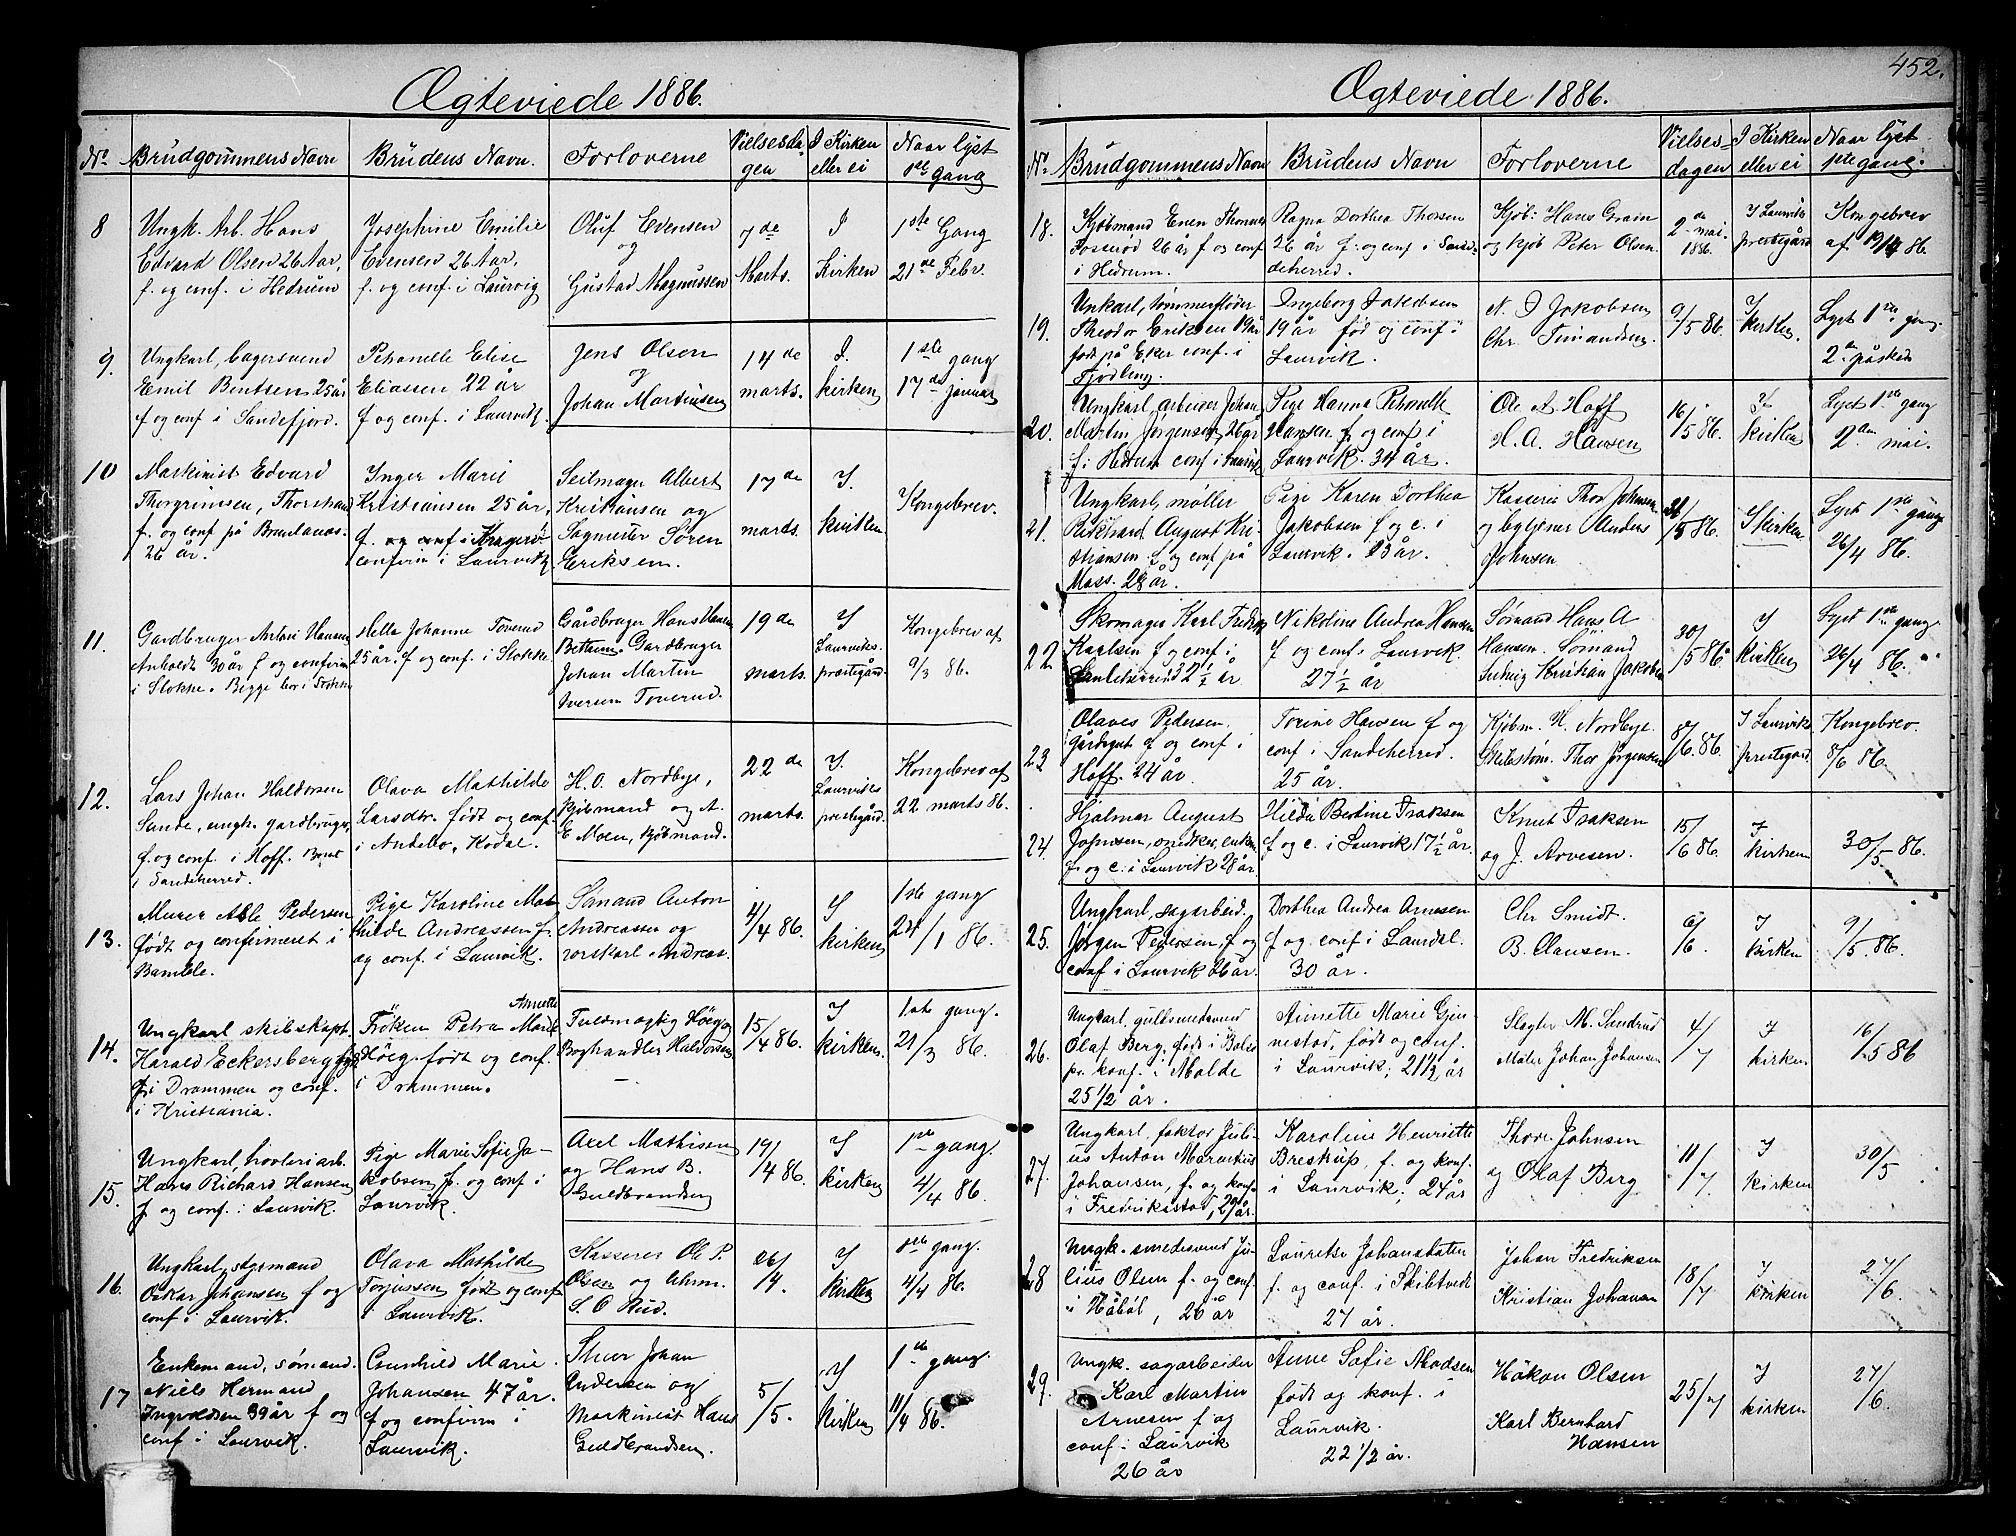 Ægteviede 1886.
No. Brudgommens Navn Brudens Navn. Forloverne Vielsesdagen I Kirken eller ei Naar lyst 1ste gang
8 Ungk. Arb. Hans
Edvard Olsen 26 Aar,
f. og conf. i Hedrum
Josephine Emilie
Evensen 26 Aar,
f. og conf. i Laurvig
Oluf Evensen
og
Gustad Magnussen
7de
Marts.
I
Kirken
1ste Gang
21de Febr.
9. Ungkarl, bagersvend
Emil Bentsen 25 år
f og conf i Sandefjord.
Petranelle Elise
Eliassen 22 år
f og conf. i Laurvik
Jens Olsen
og
Johan Martinsen
14 de
marts.
I.
kirken
1ste gang
17de januar
10 Maskinist Edvard
Thorgrimsen,
f. og conf på
26 år.
Inger Marie
Kristiansen 25 år,
f. og conf i Kragerö
confirm i Laurvik
Seilmager Albert
Kristiansen og
Sagmester Sören
Eriksen.
17 de
marts.
I.
kirken
Kongebrev.
11. Gardbruger Antoni Hansen
Anholdt 30 år f og confirm
i Stokke. Begge bor i Stokke
Hella Johanne Toverud
25 år. f og conf. i Stokke
Gårdbruger Hans Hansen
Gardbruger
Johan Martin
Iversen Toverud.
19 de
marts.
I
Laurviks.
præstegård.
Kongebrev af
9/3 86.
12. Lars Johan Haldorsen
Sande, ungk. gardbruger,
f. og conf. i Hoff. Boende
i Sandeherred.
Olava Mathilde
Larsdtr. født og conf.
i Andebo, Kodal.
H. O. Nordbye,
kjöbmand og A.
E Moen, Kjöbmand.
22 de
marts.
I.
Laurviks
præstegård.
Kongebrev af
22 marts 86.
13. Murer Atle Pedersen
født og confirmeret i
Bamble.
Pige Karoline Mat-
hilde Andreassen f.
og conf. i Laurvik.
Sömand Anton
Andreassen og
Andreas.
4/4 86.
I
kirken
1ste gang
24/1 86.
14. Ungkarl skibskapt.
Harald Eckersberg
f i Drammen og conf.
i Kristiania.
Annette
Fröken Petra Marie
Höeg født og conf.
i Drammen.
Fuldmægtig Höeg og
Boghandler Haldorsen
—
15/4 86.
I
kirken.
1ste gang.
21/3 86.
15. Ungkarl, hövleriarb.
Hans Richard Hansen
f og conf. i Laurvik.
Pige Marie Sofie Ja-
kobsen f. og conf i
Laurvik.
Axel Mathisen
og Hans B.
Guldbrandsen
19/4 86.
I
kirken
1ste gang.
4/4 86.
16. Ungkarl, styrmand
Oskar Johansen f og
conf i Laurvik.
Olava Mathilde
Torjussen födt og conf
i Laurvik.
Kasserer Ole P.
Olsen og
S. O Rud.
26/4.
I
kirken
1ste gang.
4/4 86.
17 Enkemand, sömand.
Niels Hermand
Ingvoldsen 39 år f og
conf. i Laurvik.
Gunhild Marie
Johansen 47 år.
f og confirm i
Laurvik.
Johan
Andersen og
Maskinist Hans
Guldbrandsen.
5/5.
I
kirken
1ste gang.
11/4 86.
452.
Ægteviede 1886.
No. Brudgommens Navn Brudens Navn Forloverne Vielsesdagen I Kirken eller ei Naar lyst 1ste gang.
18. Kjöbmand Even Thorsen
26 år f og conf
i Hedrum.
Ragna Dorthea Thorsen
26 år f. og conf i Sande-
deherred.
Kjöb: Hans Grøin
og kjöb Peter Olsen
2de
mai.
1886.
I Laurviks
prestegård
Kongebrev
af 19/4 86.
19. Unkarl, tömmerfløder
Theodor Eriksen 19 år
født på Eker conf. i
Fjödling.
Ingeborg Jakobsen
19 år född og conf i
Laurvik.
N. J Jakobsen
Chr. Timandsen
9/5 86.
I
kirken.
Lyst 1ste gang
2den påskedag
20. Ungkarl, arbeider Johan
Martin Jörgensen, 26 år
f i Hedrum conf i Laurvik
Pige Hanna
Hansen f og conf i
Laurvik. 34 år.
Ole A. Hoff
H. A. Hansen
16/5 86.
I
kirken
Lyst 1ste gang
2den mai.
21. Ungkarl, møller
Rickhard August Kri-
stiansen f. og conf på
Moss. 28 år.
Pige Karen Dorthea
Jakobsen f og c. i
Laurvik. 23 år.
Kasserer Thor Johnsen
og bytjener Anders
Johnsen
/5 86.
I kirken
Lyst 1ste gang
26/4 86.
22 Skomager Karl Fredrik
Karlsen f og conf i
Sandeherred 22 1/2 år
Nikoline Andrea Hansen
f og conf i Laurvik.
27 1/2 år
Sömand Hans A
Hansen. Sömand
Ludvig Kristian Jakobsen
30/5 86.
I
kirken
Lyst 1ste gang
26/4 86.
23 Olaves Pedersen,
f og conf i
Hoff. 24 år.
Torine Hansen f og
conf i Sandeherred.
25 år.
Kjöbm. H. Nordbye.
Thor Jörgensen
8/6 86.
I Laurviks
prestegård.
Kongebrev.
8/6 86.
24. Hjalmar August
Johnsen, snedker, enkem
f. og c. i Laurvik 28 år.
Hilda Bertine Isaksen
f og c. i Laurvik 17 1/2 år.
Knut Isaksen
og J. Arvesen.
15/6 86.
I
kirken
30/5 86.
25. Ungkarl, sagarbeid.
Jörgen Pedersen, f og
conf i Laurvik 26 år.
Dorthea Andrea Arnesen
f og conf. i Laurdal.
30 år.
Chr Smidt.
B. Clausen.
6/6
I
kirken
9/5. 86.
26. Ungkarl, gullsmedsvend
Olaf Berg, født i Bolsø
pr. konf. i Molde
25 1/2 år.
Annette Marie Gjen-
nestad, født og conf.
i Laurvik; 21 1/2 år
Slagter M. Sundrud
Maler Johan Johansen
4/7
I
kirken
16/5 86
27. Ungkarl, faktor Juli-
us Anton Maraetius
Johansen, f. og konf
i Fredrikstad, 29 år.
Karoline Henriette
Breskup, f. og konf.
i Laurvik, 24 år
Thore Johnsen
og Olaf Berg
11/7
I
kirken
30/5
28 Ungk. smedesvend Ju-
lius Olsen f. og conf
i Håböl, 26 år
Lauretse Johansdatter
f. og conf. i Skibtvedt
27 år.
Johan Fredriksen
Kristian Johansen
18/7
I
kirken
27/6.
29. Ungk. sagarbeider
Karl Martin
Arnesen f og
conf i Laurvik
26 år
Anne Sofie Madsen
født og konf. i
Laurvik.
22 1/2 år.
Håkon Olsen
Karl Bernhard
Hansen
25/7
I
kirken
27/6.